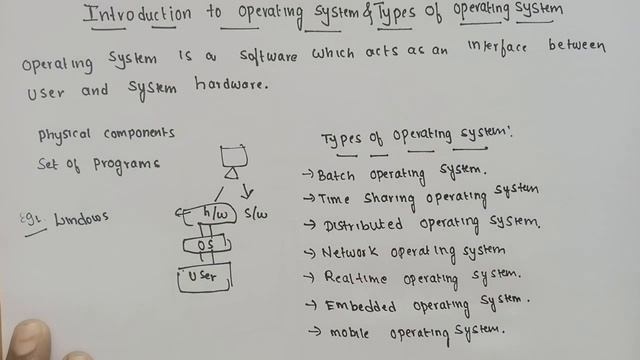 Introduction to operating system & Types of operating system
operating system is a software which acts as an interface between
user and system hardware.
physical components
Set of programs
Eg:- Windows
h/w
S/w
OS
User
Types of operating system:
→ Batch operating system.
→ Time sharing operating system
→ Distributed operating system.
→ Network operating system
→ Realtime operating system.
→ Embedded operating system.
→ mobile operating system.